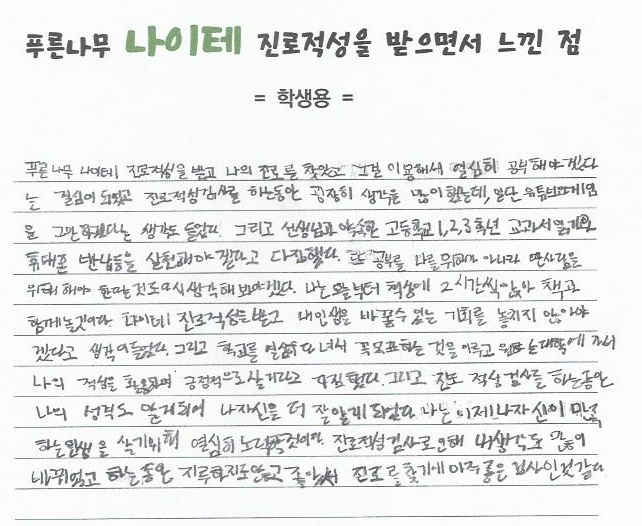 푸른나무 나이테 진로적성을 받으면서 느낀 점
= 학생용 =
푸른나무 나이테 진로적성을 받고 나의 진로를 찾았고 그걸 이용해서 열심히 공부해야겠다
는 결심이 되었고 진로적성검사를 하는동안 굉장히 생각을 많이 했는데, 일단 유튜브와 게임
을 그만해야겠다는 생각도 들었다. 그리고 선생님과 약속한 고등학교 1,2,3학년 교과서 읽기와
휴대폰 반납등을 실천해야 겠다고 다짐했다. 또 공부를 나를위해가 아니라 딴사람을
위해 해야 한다는것도 다시 생각해 봐야겠다. 나는 오늘부터 책상에 2시간씩 앉아 책과
함께 놀것이다 나이테 진로적성을 받고 내 인생을 바꿀수 있는 기회를 놓치지 않아야
겠다고 생각이 들었다. 그리고 학교를 열심히 다녀서 꼭 목표하는 것을 이루고 원하는 대학에 가서
나의 적성을 활용하며 긍정적으로 살거라고 다짐했다. 그리고 진로 적성 검사를 하는동안
나의 성격도 알게되어 나 자신을 더 잘 알게 되었다. 나는 이제 나 자신이 만족
하는 인생을 살기위해 열심히 노력할 것이며 진로적성검사로 인해 내생각도 많이
바뀌었고 하는동안 지루하지도 않고 좋았어서 진로를 찾기에 아주 좋은 검사인것 같다